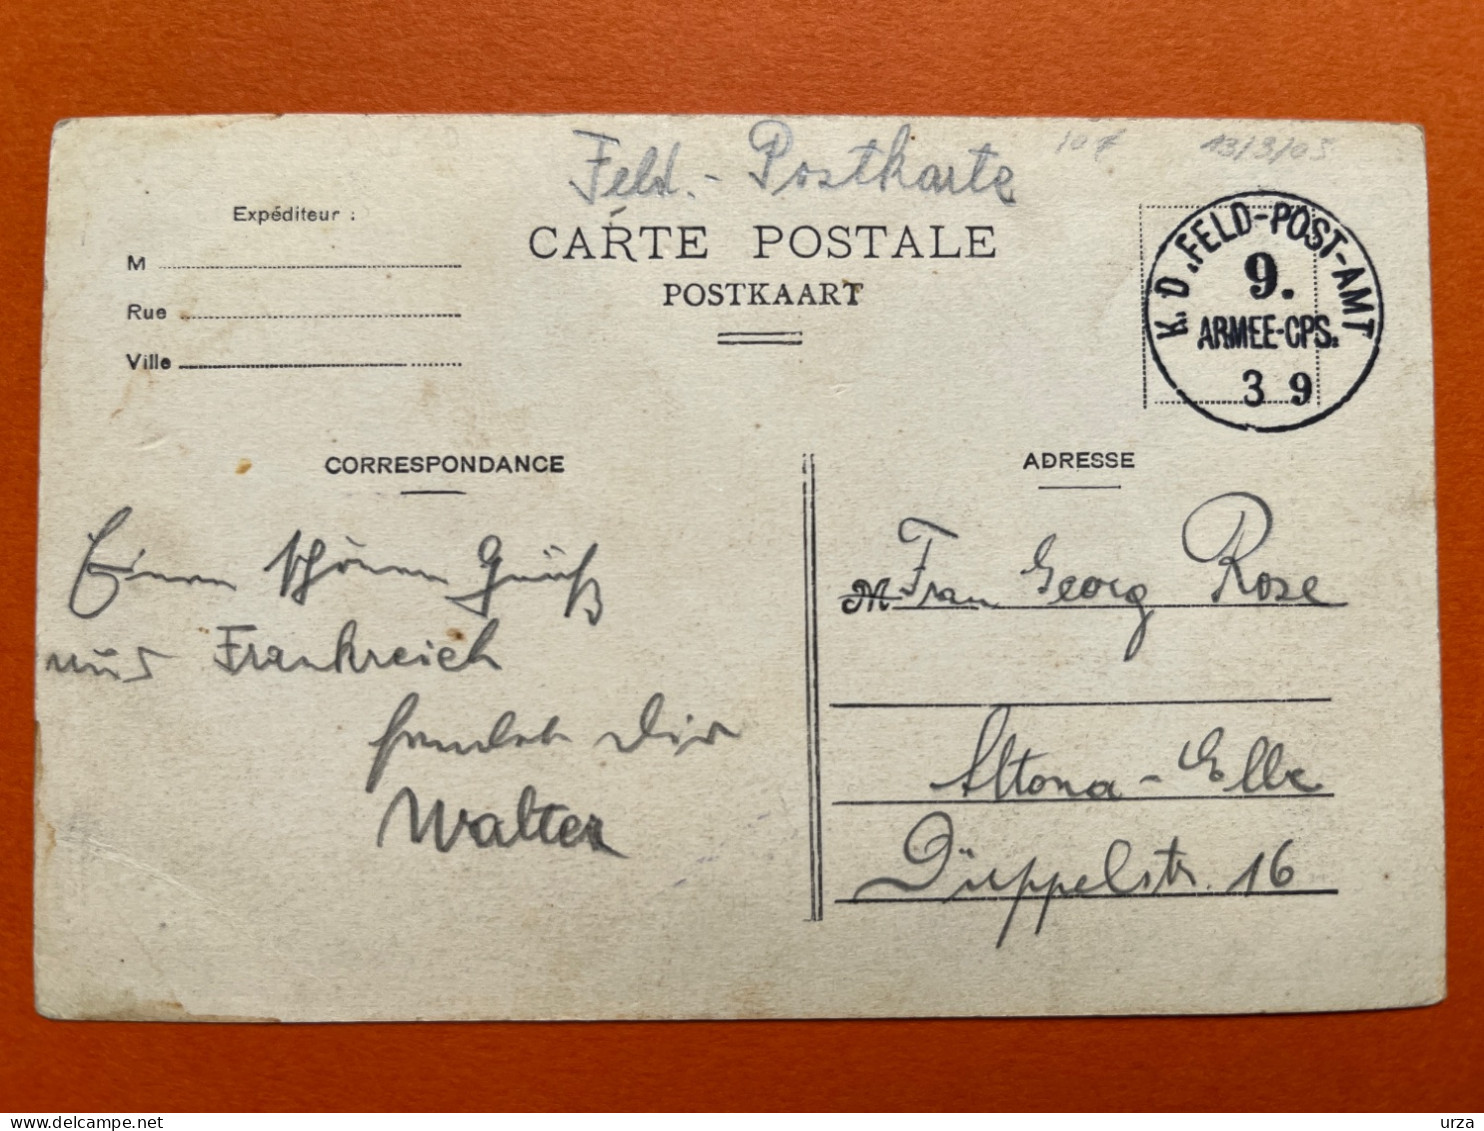 Feld.-Postkarte
107
13/3/05
Expéditeur :
M
Rue
Ville
CARTE POSTALE
POSTKAART
K. D. FELD-POST-AMT
9.
ARMEE-CPS.
3 9
CORRESPONDANCE
Einen schönen Gruß
aus Frankreich
sendet Dir
Walter
ADRESSE
M Frau Georg Rose
Altona-Elbe
Düppelstr. 16
delcampe.net
urza